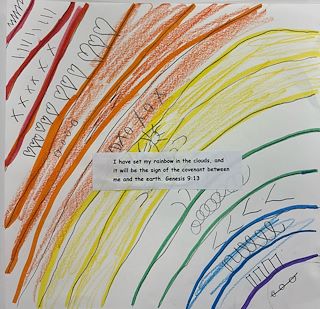 I have set my rainbow in the clouds, and
it will be the sign of the covenant between
me and the earth. Genesis 9:13